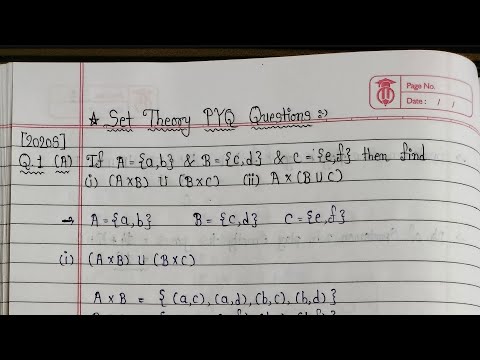 Page No.
Date: / /
☆ Set Theory PYQ Questions :-
[2020S]
Q.1 (A) If A = {a,b} & B = {c,d} & C = {e,f} then find
(i) (A×B) ∪ (B×C) (ii) A×(B∪C)
→ A = {a,b} B = {c,d} C = {e,f}
(i) (A×B) ∪ (B×C)
A×B = { (a,c), (a,d), (b,c), (b,d) }